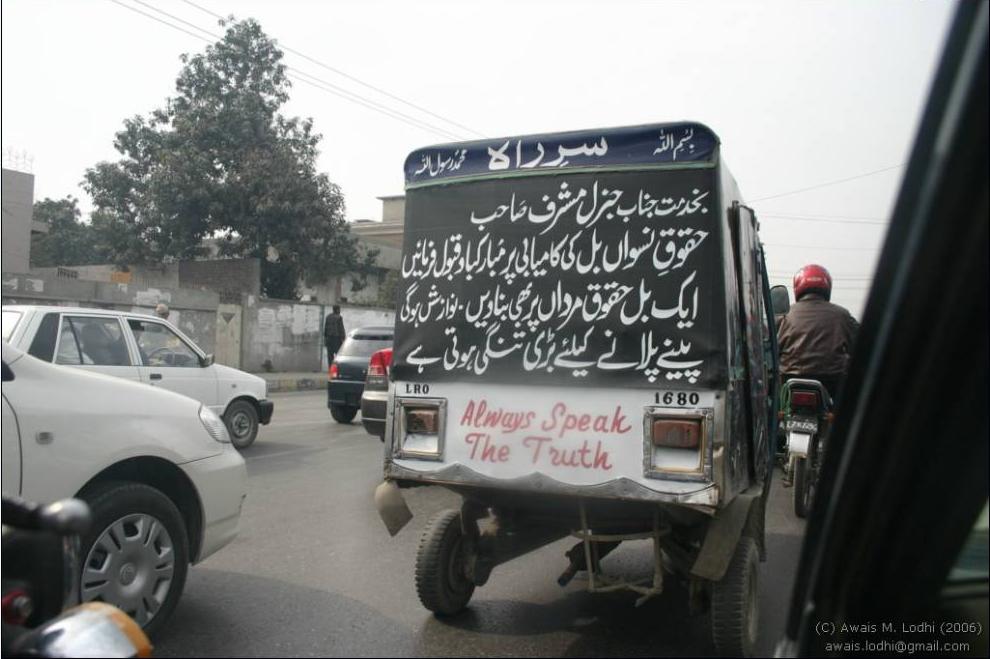 بسم اللہ سرراہ محمد رسول اللہ
بخدمت جناب جنرل مشرف صاحب
حقوق نسواں بل کی کامیابی پر مبارکباد قبول فرمائیں
ایک بل حقوق مرداں پر بھی بنادیں - نوازش ہوگی
پینے پلانے کیلئے بڑی تنگی ہوتی ہے
LRO 1680
Always Speak
The Truth
(C) Awais M. Lodhi (2006)
awais.lodhi@gmail.com